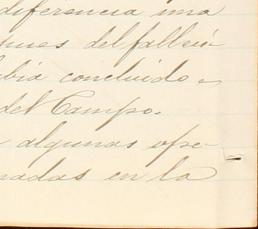 diferencia una
del falleci
concluido
del Campo.
algunas ope-
nadas en la